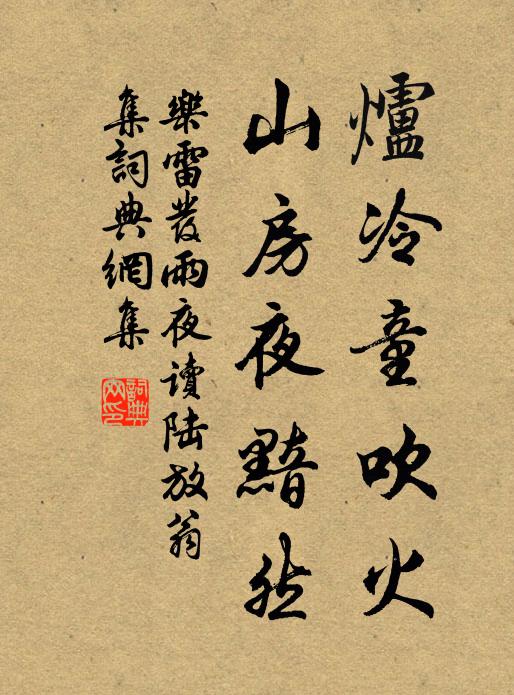 爐冷童吹火
山房夜黯然
樂雷發雨夜讀陸放翁
集詞典網集
詞典
網印